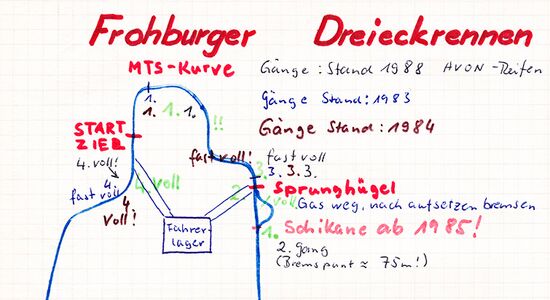 Frohburger Dreieckrennen
MTS-Kurve
Gänge: Stand 1988 AVON-Reifen
1.
1. 1. 1. !!
Gänge Stand: 1983
START
ZIEL
Gänge Stand: 1984
4. voll!
fast voll! fast voll
3.
3. 3. 3.
4. fast voll
4. voll
4
voll!
2. voll!
Sprunghügel
Gas weg, nach aufsetzen bremsen
Fahrer
lager
1. Schikane ab 1985!
2. gang
(Bremspunt ≈ 75m!)